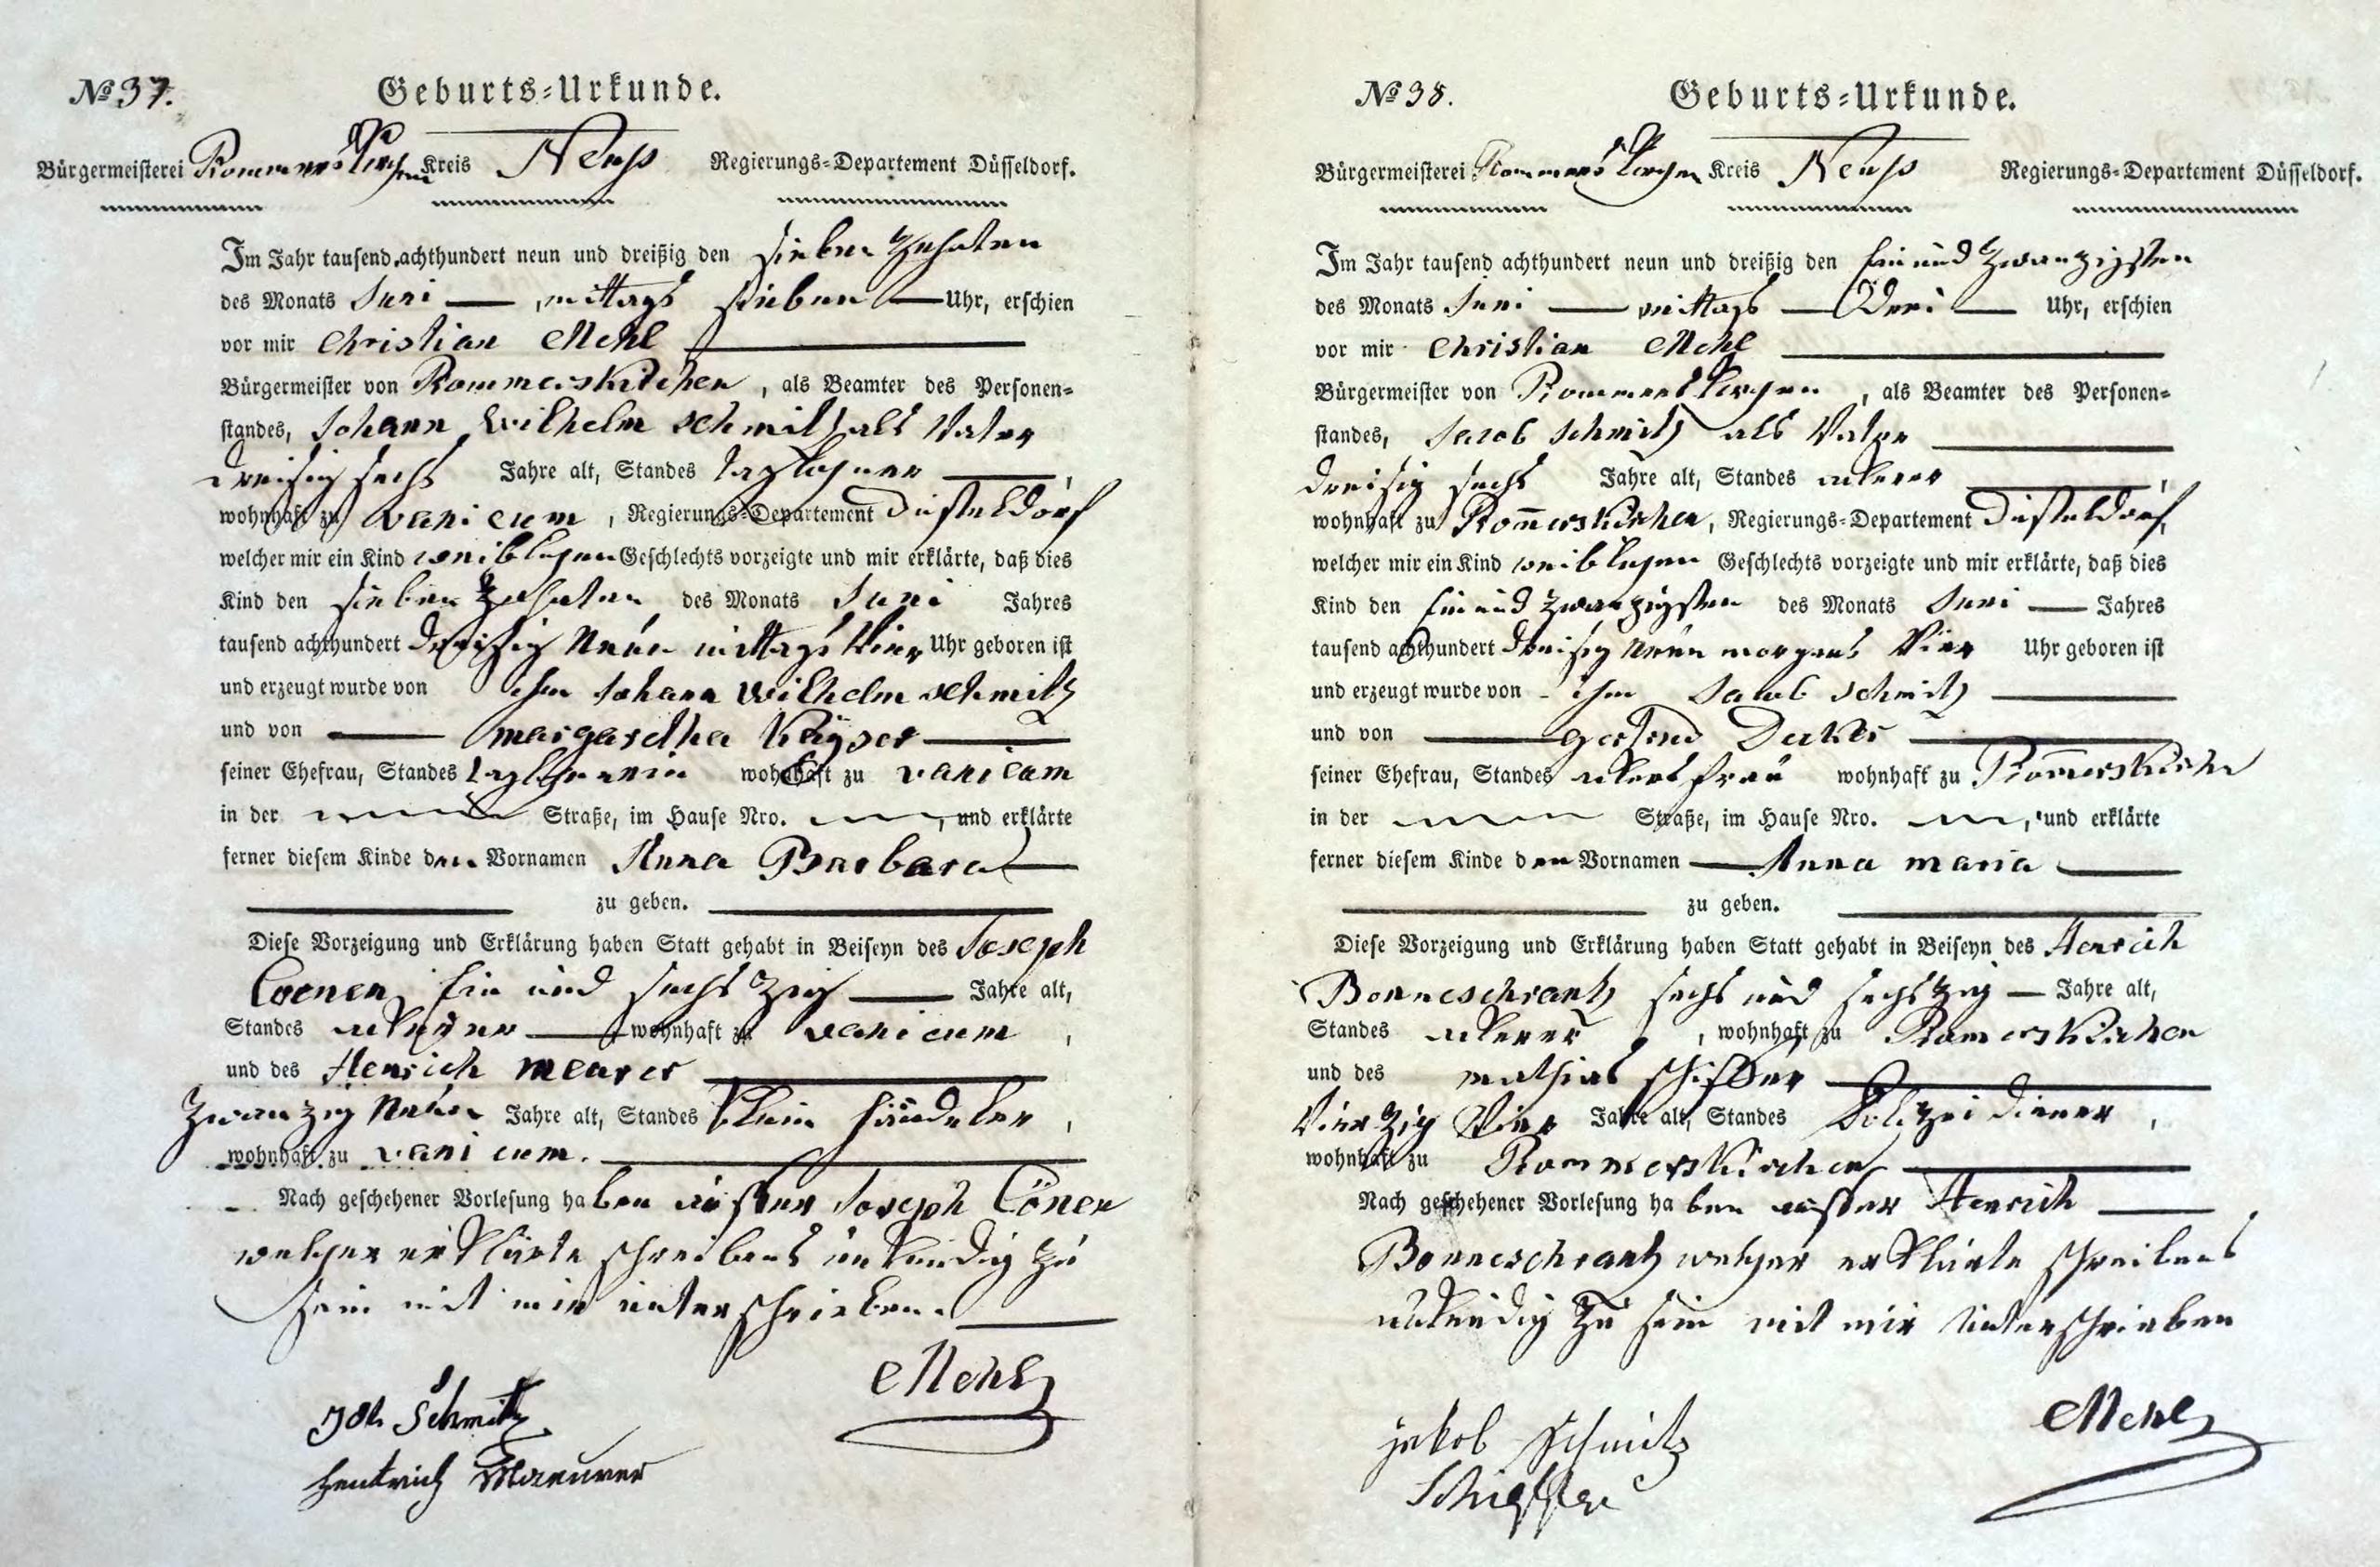 № 37. Geburts-Urkunde.
Bürgermeisterei Rommerskirchen Kreis Neuss Regierungs-Departement Düsseldorf.
Im Jahr tausend achthundert neun und dreißig den sieben zehnten
des Monats Juni — mittags sieben — Uhr, erschien
vor mir Christian Mehl
Bürgermeister von Rommerskirchen, als Beamter des Personen-
standes, Johann Wilhelm Schmitz als Vater
dreisig sechs Jahre alt, Standes taglohner,
wohnhaft zu vanicum, Regierungs-Departement Düsseldorf
welcher mir ein Kind weiblichen Geschlechts vorzeigte und mir erklärte, daß dies
Kind den sieben zehnten des Monats Juni Jahres
tausend achthundert dreisig Neun mittags Vier Uhr geboren ist
und erzeugt wurde von ihm Johann Wilhelm Schmitz
und von — margaretha Kayser —
seiner Ehefrau, Standes taglohnerin wohnhaft zu vanicum
in der Straße, im Hause Nro. , und erklärte
ferner diesem Kinde den Vornamen Anna Barbara —
zu geben.
Diese Vorzeigung und Erklärung haben Statt gehabt in Beiseyn des Joseph
Coenen, Ein und sechs zig — Jahre alt,
Standes ackerer — wohnhaft zu vanicum,
und des Henrich meurer
zwanzig Neun Jahre alt, Standes klein händeler,
wohnhaft zu vanicum.
Nach geschehener Vorlesung haben ausser Joseph Cönen
welcher erklärte schreibens unkundig zu
sein mit mir unterschrieben.
Mehl
Joh Schmitz
Hentrich Maeurer
№ 38. Geburts-Urkunde.
Bürgermeisterei Rommerskirchen Kreis Neuss Regierungs-Departement Düsseldorf.
Im Jahr tausend achthundert neun und dreißig den Ein und zwanzigsten
des Monats Juni — mittags — Drei — Uhr, erschien
vor mir Christian Mehl
Bürgermeister von Rommerskirchen, als Beamter des Personen-
standes, Jacob Schmitz als Vater
dreisig sechs Jahre alt, Standes ackerer,
wohnhaft zu Rom̄erskirchen, Regierungs-Departement Düsseldorf,
welcher mir ein Kind weiblichen Geschlechts vorzeigte und mir erklärte, daß dies
Kind den Ein und zwanzigsten des Monats Juni — Jahres
tausend achthundert dreisig Neun morgens Vier Uhr geboren ist
und erzeugt wurde von ihm Jacob Schmitz
und von — gertrud —
seiner Ehefrau, Standes ackersfrau wohnhaft zu Rom̄erskirchen
in der Straße, im Hause Nro. , und erklärte
ferner diesem Kinde den Vornamen — Anna maria —
zu geben.
Diese Vorzeigung und Erklärung haben Statt gehabt in Beiseyn des Henrich
Bonneschrantz sechs und sechszig — Jahre alt,
Standes ackerer, wohnhaft zu Romerskirchen
und des mathias
Vierzig Vier Jahre alt, Standes Polizei diener,
wohnhaft zu Rommerskirchen
Nach geschehener Vorlesung haben ausser Henrich —
Bonneschrantz welcher erklärte schreibens
unkundig zu sein mit mir unterschrieben
Mehl
jakob Schmitz